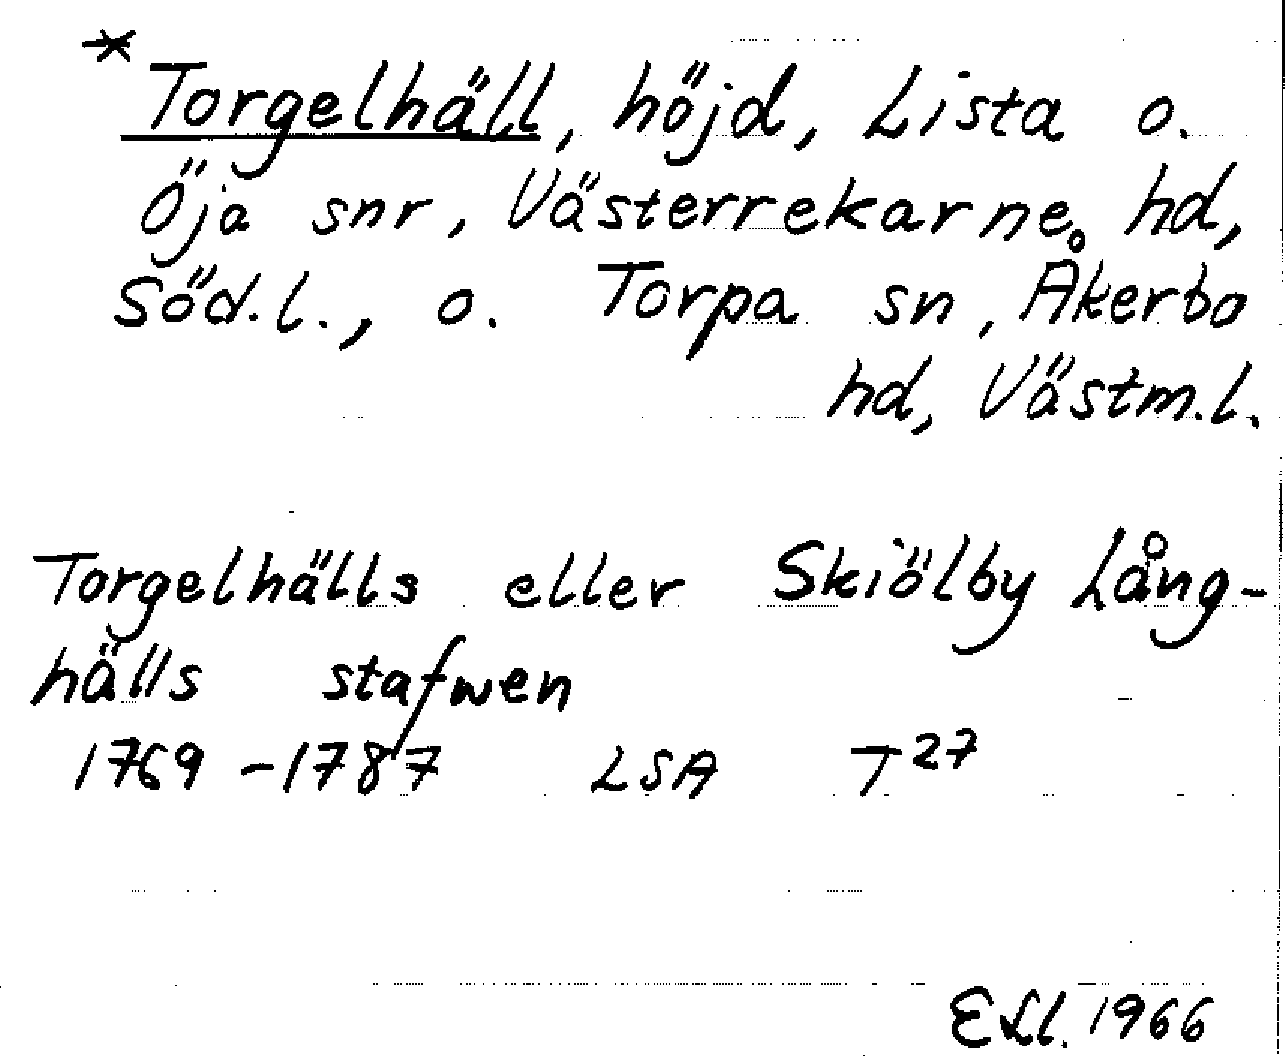 * Torgelhäll, höjd, Lista o.
Öja snr, Västerrekarne hd,
Söd.l., o. Torpa sn, Åkerbo
hd, Västm.l.
Torgelhälls eller Skiölby Lång-
hälls stafwen
1769-1787 LSA T27
ELl. 1966